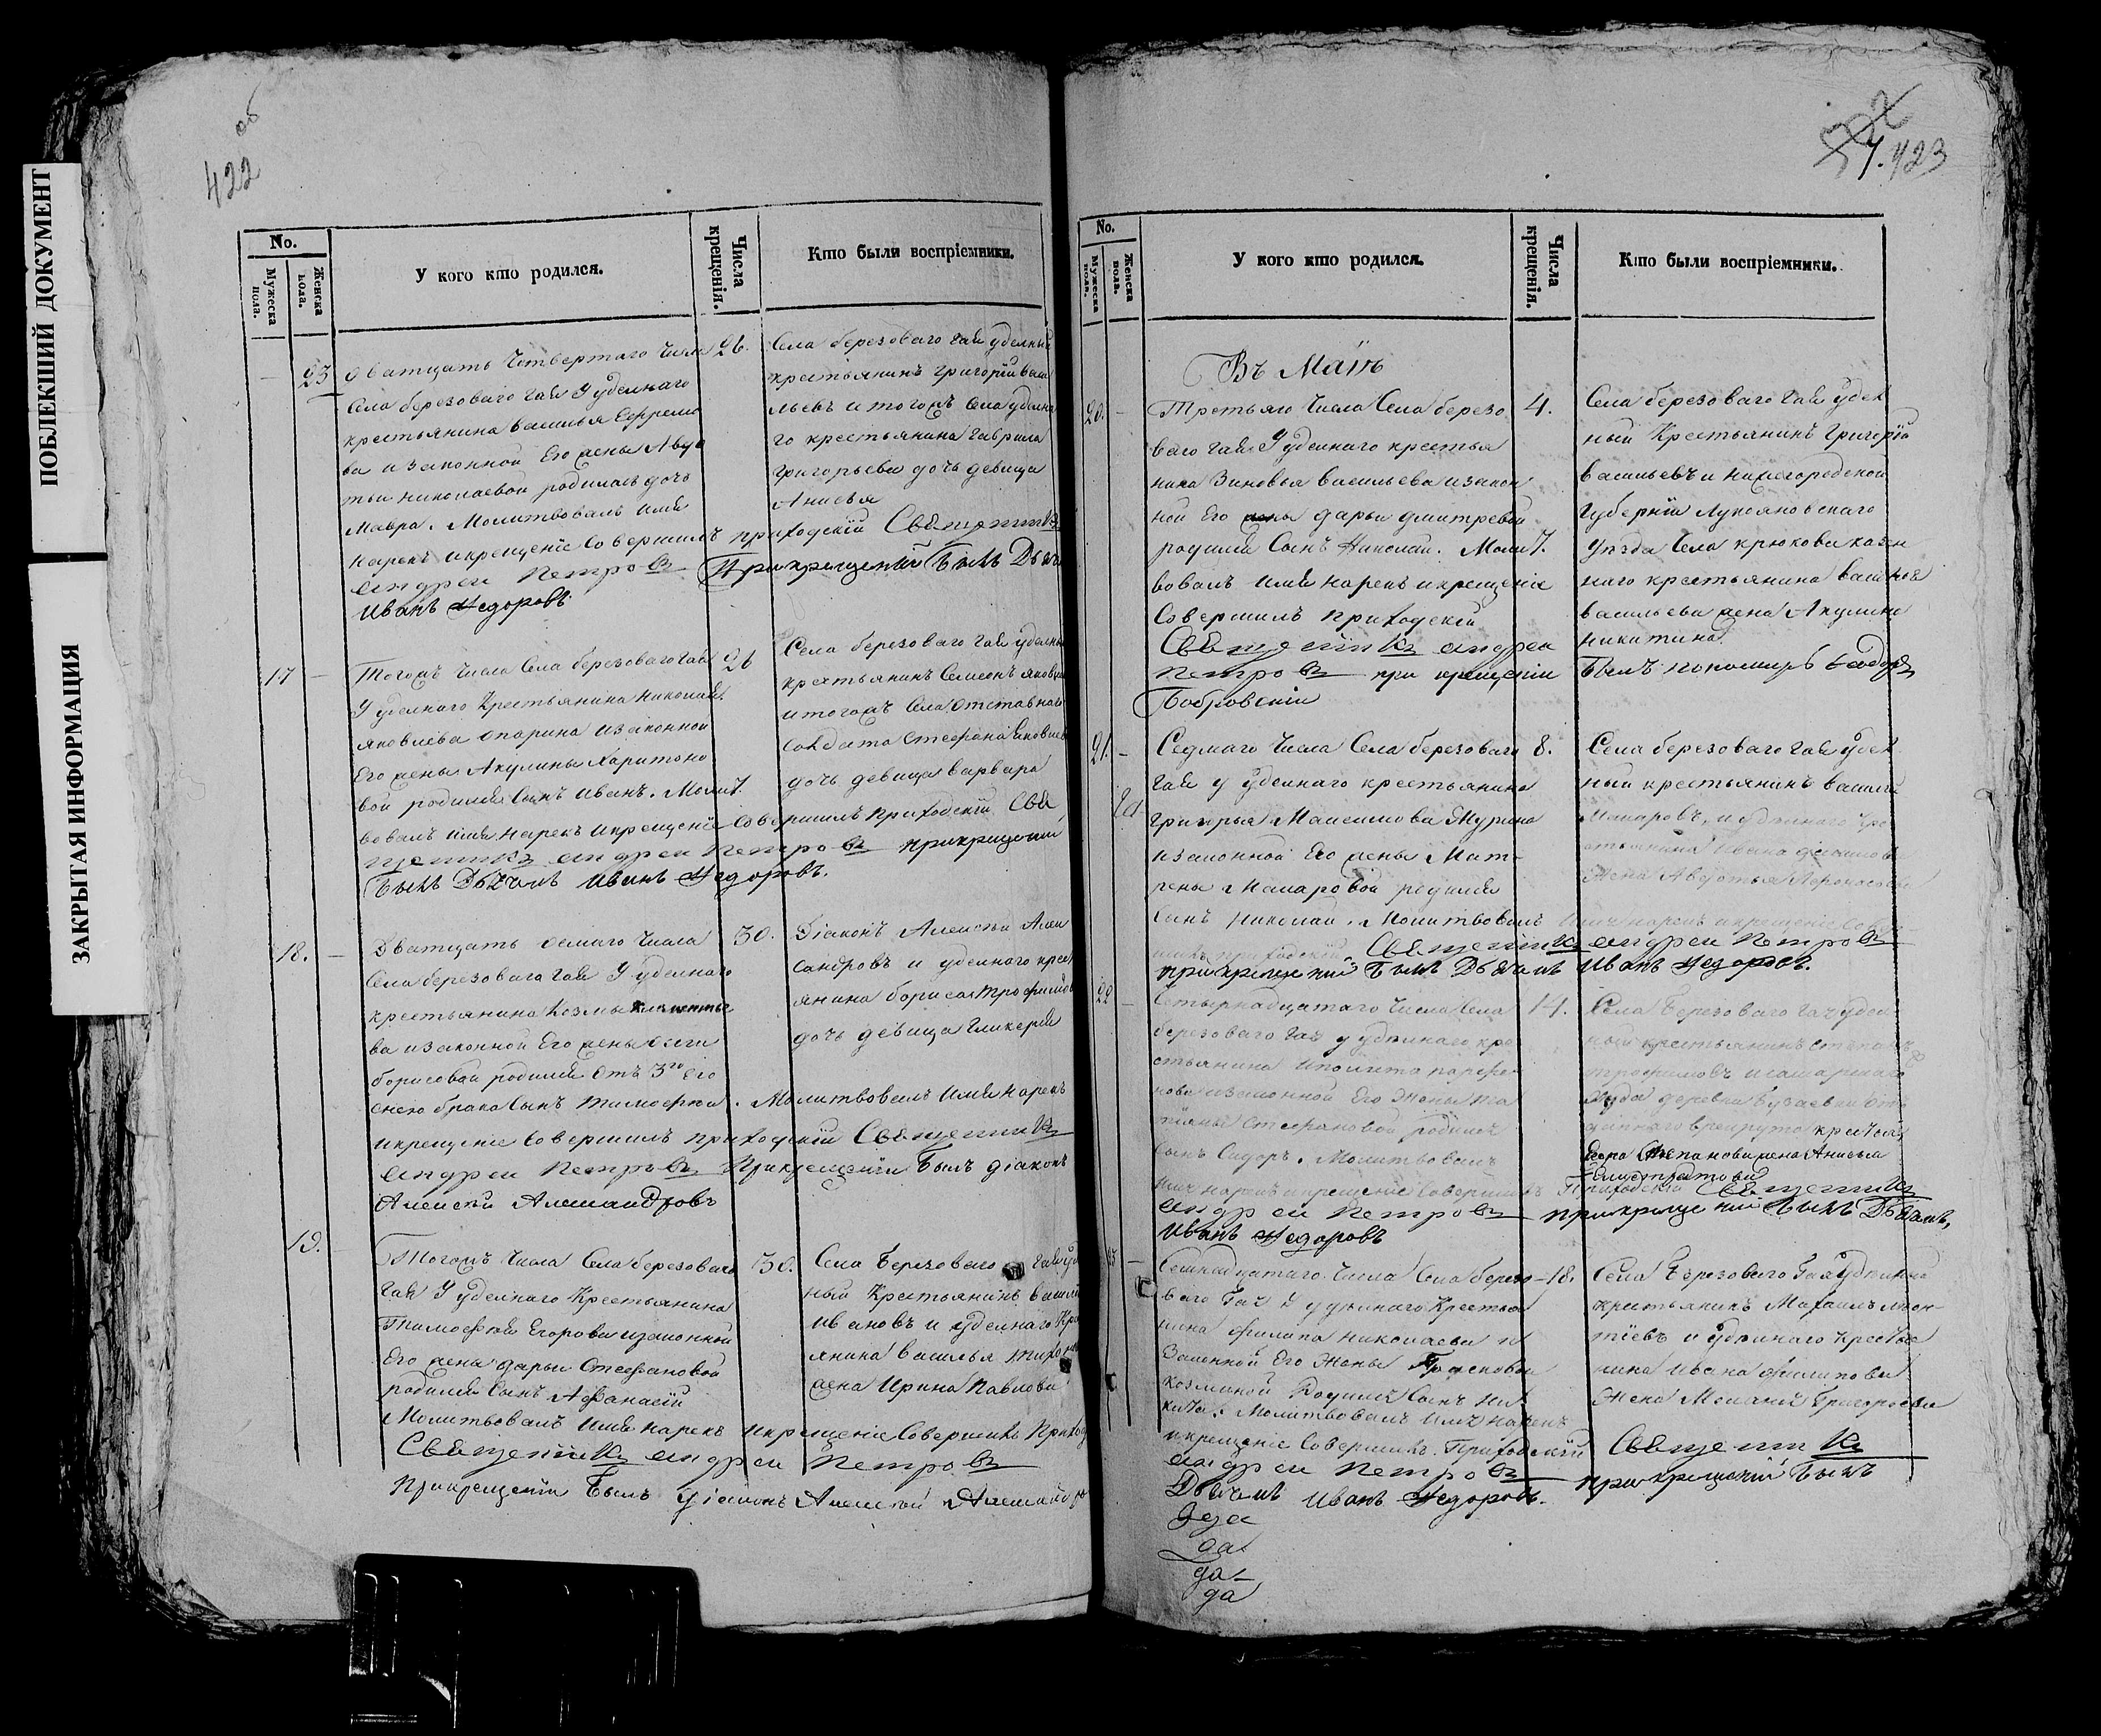 ПОБЛЕКШИЙ ДОКУМЕНТ
ЗАКРЫТАЯ ИНФОРМАЦИЯ
422
об
No.
Мужеска пола.
Женска пола.
У кого кто родился.
Числа крещенія.
Кто были воспріемники.
23
Дватцать Четвертаго Числа
Села березоваго Гая У уделнаго
крестьянина василья Ефремо
ва изаконной Его жены Авдо
тьи николаевой родилась дочь
Мавра. Молитвовалъ имя
Нарекъ икрещеніе Совершилъ приходскій Священникъ
андреи Петровъ Прикрещеніи былъ Дьячекъ
Иванъ Федоровъ
26.
Села березоваго Гая уделный
крестьянинъ григорій васи
льевъ и тогожъ Села уделна
го крестьянина гаврила
григорьева дочь девица
Анисья
17
Тогожъ Числа Села березоваго Гая
У уделнаго Крестьянина николая
яковлева опарина изаконной
Его жены Акулины Харитоно
вой родился Сынъ Иванъ. Молит.
вовалъ имя Нарекъ икрещеніе Совершилъ приходскій Свя
щенникъ андреи Петровъ прикрещеніи
былъ Дьячекъ Иванъ Федоровъ.
26
Села березоваго Гая уделный
крестьянинъ Семионъ яковлев
и тогожъ Села Отставнаго
Солдата Стефана яковлев
дочь девица варвара
18.
Дватцать осмаго Числа
Села березоваго Гая У уделнаго
крестьянина Козмы
ва изаконной Его жены
борисовой родился Отъ 3го его
Снею брака Сынъ Тимофей. Молитвовалъ Имя Нарекъ
икрещеніе Совершилъ приходскій Священникъ
андреи Петровъ Прикрещеніи былъ діаконъ
Алексѣй Александровъ
30.
Діаконъ Алексѣй Алек
сандровъ и уделнаго крест
янина бориса трофимов
дочь девица Гликерія
19.
Тогожъ Числа Села березоваго
Гая У уделнаго Крестьянина
Тимофея Егорова изаконной
Его жены дарьи Стефановой
родился Сынъ Афанасій
Молитвовалъ имя Нарекъ Икрещеніе Совершилъ Приход
Священникъ андреи Петровъ
Прикрещеніи былъ діаконъ Алексѣй Александр
30.
Села Березоваго Гая уд
ный Крестьянинъ васил
ивановъ и уделнаго Кр
янина василья
жена Ирина Павлова
423
No.
Мужеска пола.
Женска пола.
У кого кто родился.
Числа крещенія.
Кто были воспріемники.
Въ Маіѣ
20.
Третьяго Числа Села березо
ваго гая У уделнаго крестья
нина Зиновья васильева изакон
ной Его жены дарьи дмитревой
родился Сынъ Николай. Молит.
вовалъ имя нарекъ икрещеніе
Совершилъ приходскій
Священникъ андреи
Петровъ при крещеніи былъ пономарь
Бобровскіи
4.
Села березоваго Гая удел
ный Крестьянинъ григорій
васильевъ и нижегородской
губерніи Лукояновскаго
уѣзда Села крюкова казен
наго крестьянина
васильева жена Акулина
никитина
21.
Седмаго Числа Села березоваго
Гая у уделнаго крестьянина
григорья Максимова
изаконной Его жены Мат-
рены Макаровой родился
Сынъ Николай. Молитвовалъ Имя нарекъ икрещеніе Совер
шилъ приходскій Священникъ андреи Петровъ
прикрещеніи былъ Дьячекъ Иванъ Федоровъ.
8.
Села березоваго Гая удел
ный крестьянинъ василій
Макаровъ, и уделнаго кре
стьянина Ивана
жена Авдотья
22
Четырнадцатаго Числа Села
березоваго Гая у удѣлнаго кре
стьянина Иполита парфе-
нова изаконной Его Жены Та
тіяны Стефановой родился
Сынъ Сидоръ. Молитвовалъ
имя нарекъ икрещеніе Совершилъ Приходскій Священникъ
андреи Петровъ прикрещеніи былъ Дьячекъ,
Иванъ Федоровъ
14.
Села Березоваго Гая удел
ный крестьянинъ Степанъ
трофимовъ исамарскаго
уѣзда деревни
Степанова жена Анисья
23
Семнадцатаго Числа Села берего-
ваго Гая У удѣлнаго Крестья
нина филипа николаева и
Законной Его Жены
козминой Родился Сынъ Ни
кита. Молитвовалъ Имя нарекъ
икрещеніе Совершилъ Приходскій Священникъ
андреи Петровъ прикрещеніи былъ
Дьячекъ Иванъ Федоровъ.
18.
Села Березоваго Гая Удѣлный
крестьянинъ Михаилъ
тіевъ и Удѣлнаго крестья
нина Ивана филипова
Жена Григорьева
да
да
да